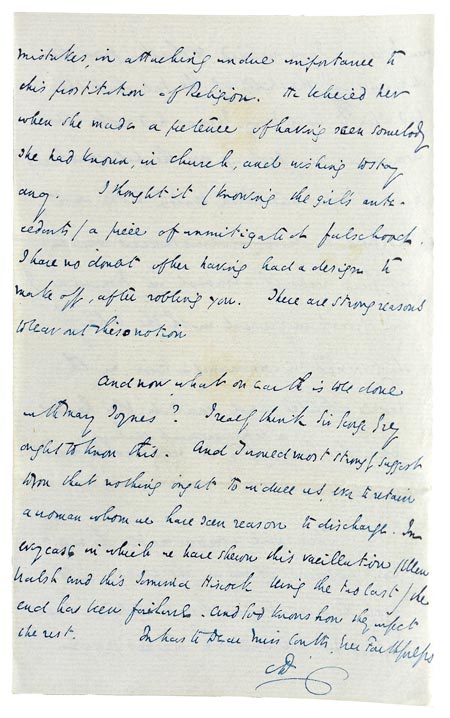 mistakes, in attaching undue importance to
this prostitution of Religion. He believed her
when she made a pretence of having seen somebody
she had known, in church, and wishing to stay
away. I thought it (knowing the girl's ante-
cedents) a piece of unmitigated falsehood.
I have no doubt of her having had a design to
make off, after robbing you. There are strong reasons
to bear out this notion
And now, what on earth is to be done
with Mary Joynes? I really think Sir George Grey
ought to know this. And I would most strongly suggest
to you that nothing ought to induce us ever to retain
a woman whom we have seen reason to discharge. In
every case in which we have shewn this vacillation (Ellen
Walsh and this Jemima Hiscock being the two last) the
end has been failure. And God knows how they infect
the rest. In haste Dear Miss Coutts, Ever Faithfully
CD